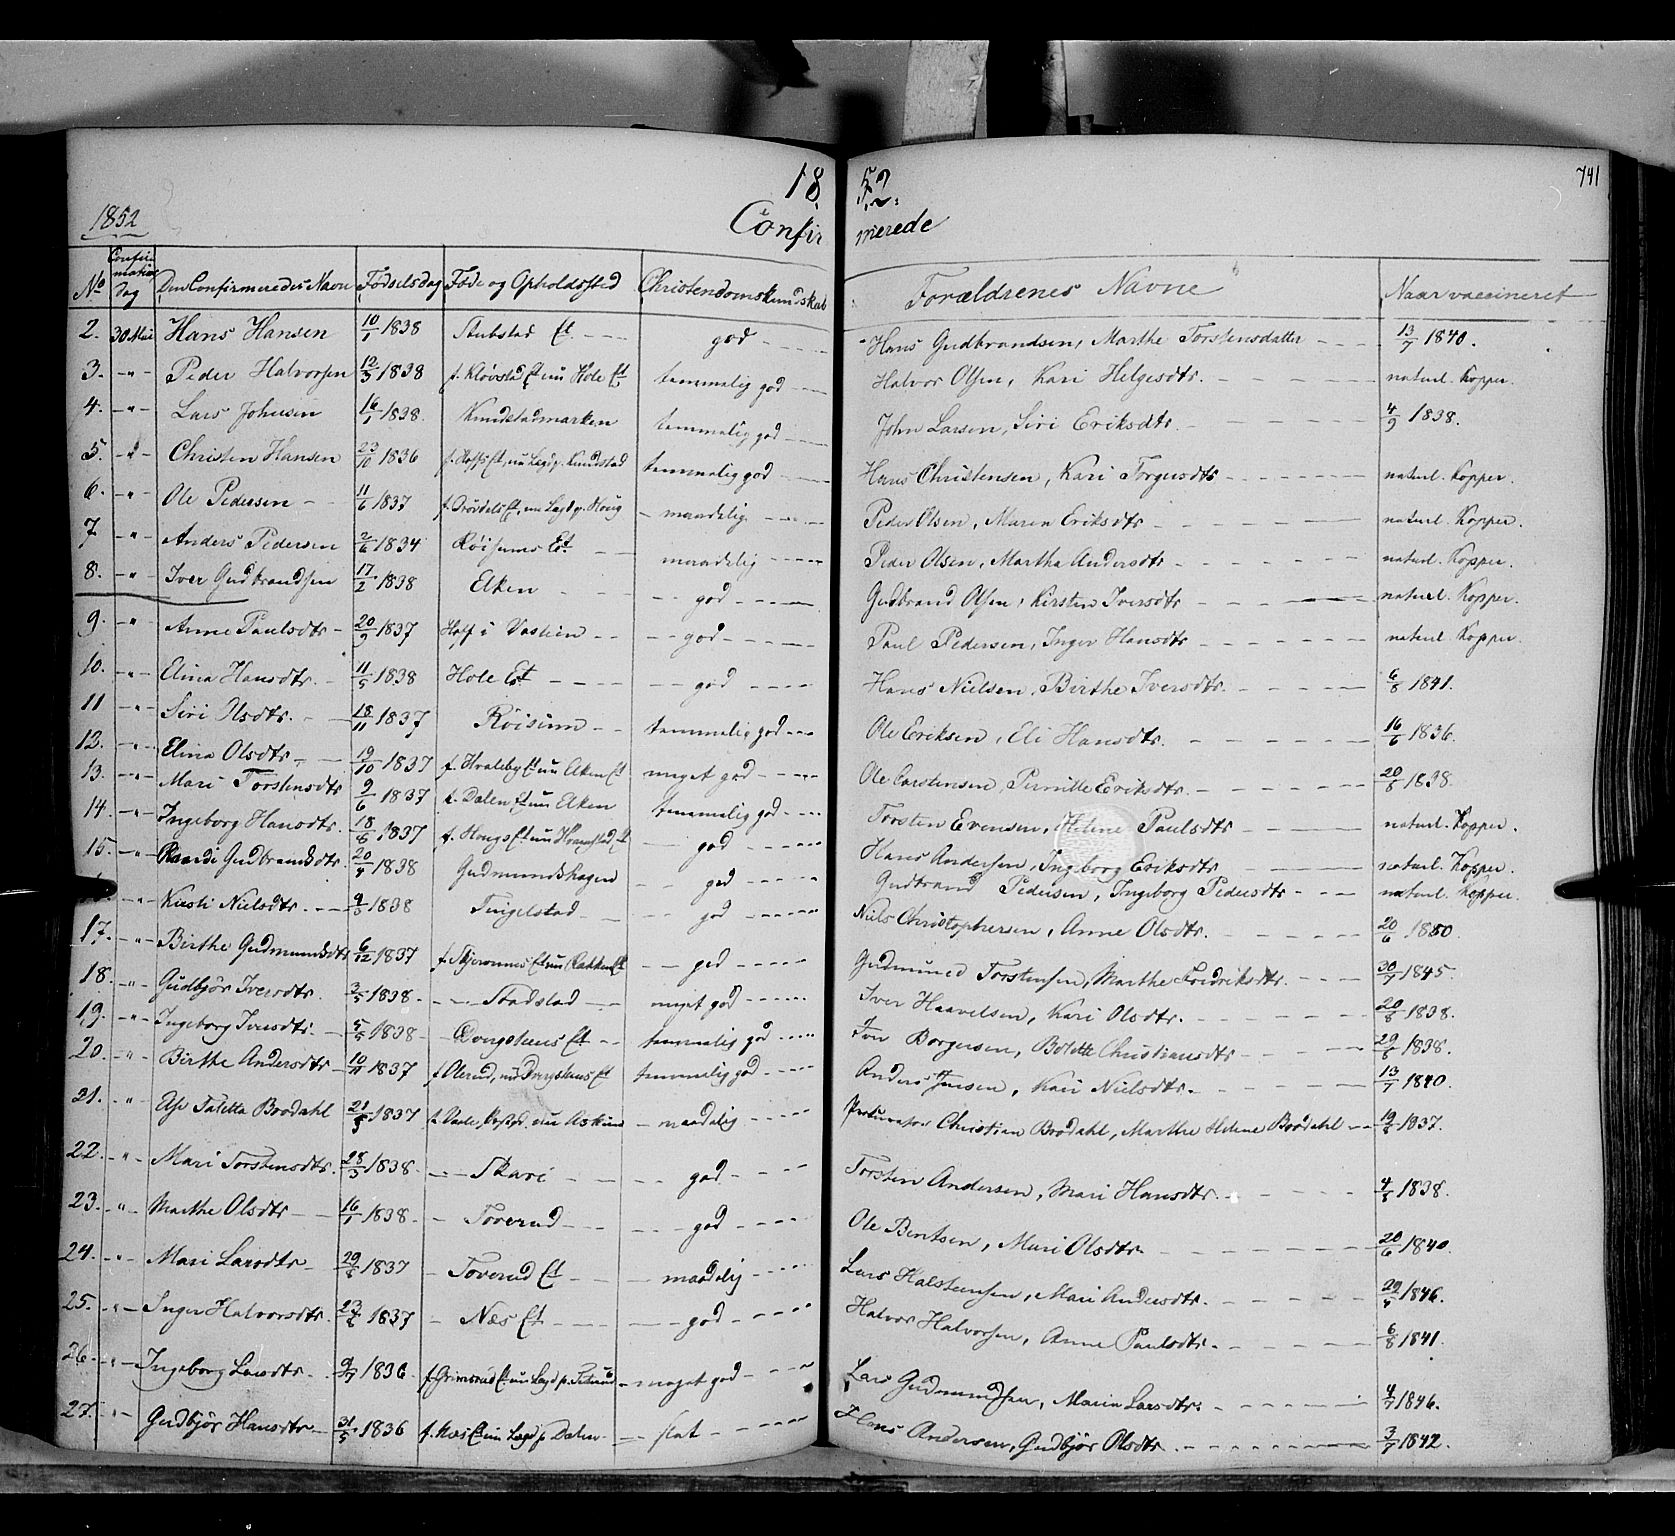 18 52 741
1852
Confir merede
No Confirmations Dag Den Confirmeredes Navn Fødselsdag Føde og Opholdssted Christendomskundskab Forældrenes Navne Naar vaccineret
2. 30 Mai Hans Hansen 10/1 1838 Stubstad Et. god Hans Gudbrandsen, Marthe Torstensdatter 13/7 1840.
3. -"- Peder Halvorsen 12/3 1838 f. Kløvstad Et nu Hole Et temmelig god Halvor Olsen, Kari Helgesdtr. naturl. Kopper.
4. -"- Lars Johnsen 16/1 1838. Kundstadmarken temmelig god John Larsen, Siri Eriksdtr. 4/9 1838.
5. -"- Christen Hansen 23/10 1836 temmelig god Hans Christensen, Kari Torgersdtr naturl. Kopper.
6. -"- Ole Pedersen 11/6 1837 maadelig Peder Olsen, Maren Eriksdtr naturl. Kopper.
7. -"- Anders Pedersen 2/6 1834 Røisums Et. maadelig Peder Olsen, Martha Andersdtr naturl. Kopper.
8. -"- Iver Gudbrandsen 17/2 1838 Elken god Gudbrand Olsen, Kirsten Iversdtr naturl. Kopper.
9. -"- Anne Paulsdtr 20/9 1837 Half i Vestien god Paul Pedersen, Inger Hansdtr naturl. Kopper.
10. -"- Elina Hansdtr. 11/5 1838 Hole Et god Hans Nielsen, Birthe Iversdtr. 6/8 1841.
11 -"- Siri Olsdtr. 18/11 1837 Røisum temmelig god Ole Eriksen, Eli Hansdtr. 16/6 1836.
12. -"- Elina Olsdtr 19/10 1837 f. Hvaleby Et nu Elken Et meget god Ole Carstensen, Pernille Eriksdtr. 20/8 1838.
13. -"- Mari Torstensdtr 9/6 1837 f. Dalen Et nu Elken temmelig god Torsten Evensen, Helene Paulsdtr naturl. Kopper.
14. -"- Ingeborg Hansdtr. 18/8 1837 f. Hougs Et nu god Hans Andersen, Ingeborg Eriksdtr naturl. Kopper.
15. -"- Randi Gudbrandsdtr 20/4 1838 Gudmundshagen god Gudbrand Pedersen, Ingeborg Pedersdtr naturl. Kopper.
-"- Kirsti Nielsdtr. 9/3 1838 Tingelstad god Niels Christophersen, Anne Olsdtr. 20/6 1850.
17. -"- Birthe Gudmundsdtr 6/12 1837 god Gudmund Torstensen, Marthe Fredriksdtr. 30/7 1845.
18. -"- Gudbjør Iversdtr. 3/5 1838 Stadstad meget god Iver Haavelsen, Kari Olsdtr. 20/8 1838.
19. -"- Ingeborg Iversdtr. 5/5 1838 temmelig god Borgersen, Bolette Christiansdtr 29/8 1838.
20. -"- Birthe Andersdtr 10/11 1837 temmelig god Anders Jensen, Kari Nielsdtr. 13/7 1840.
21. " Taletta Brodahl 1837 maadelig Procurator Christian Brodahl, Marthe Helene Brodahl 19/8 1837.
22. -"- Mari Torstensdtr. 28/3 1838 Skari god Torsten Andersen, Mari Hansdtr. 4/8 1838.
23. -"- Marthe Olsdtr 16/1 1838 Toverud god Ole Bentsen, Mari Olsdtr. 20/6 1840.
24. -"- Mari Larsdtr 29/8 1837 Toverud Et maadelig Lars Halstensen, Mari Andersdtr. 1846.
25. -"- Inger Halvorsdtr. 1837 Næs Et god Halvor Halvorsen, Anne Paulsdtr. 6/8 1841.
26. -"- Ingeborg Larsdtr 9/7 1836 meget god Lars Gudmundsen, Maria Larsdtr. 4/7 1846.
27. -"- Gudbjør Hansdtr. 31/5 1836 slet Hans Andersen, Gudbjør Olsdtr 3/7 1842.